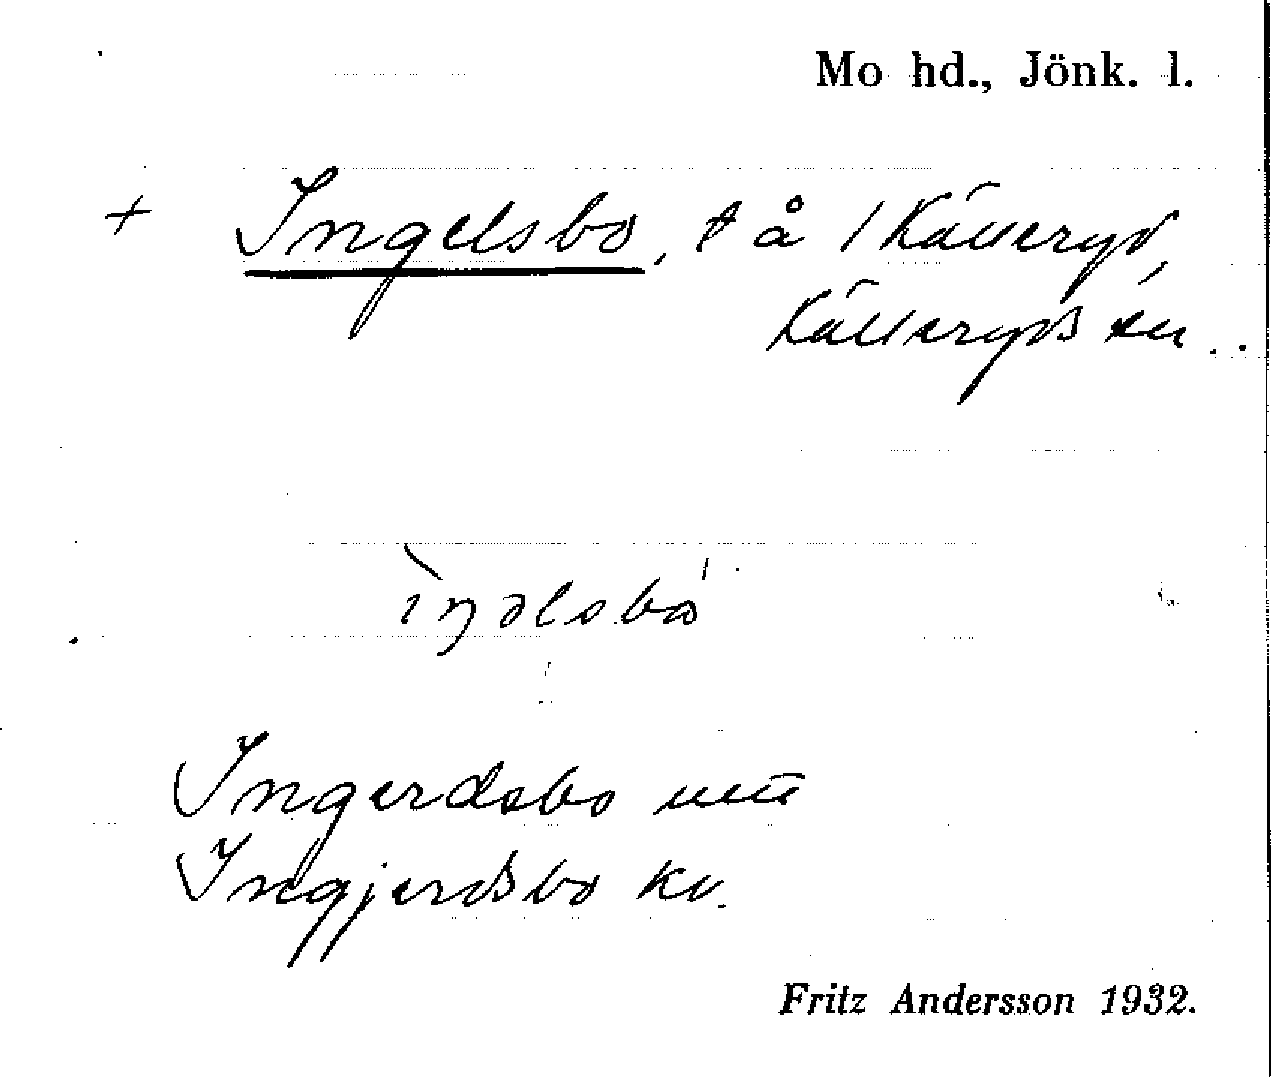 Mo hd., Jönk. l.
+ Ingelsbo, t å / Källeryd,
Källeryds sn..
ìŋəlsbo
Ingerdsbo
Ingjerdsbo kv.
Fritz Andersson 1932.